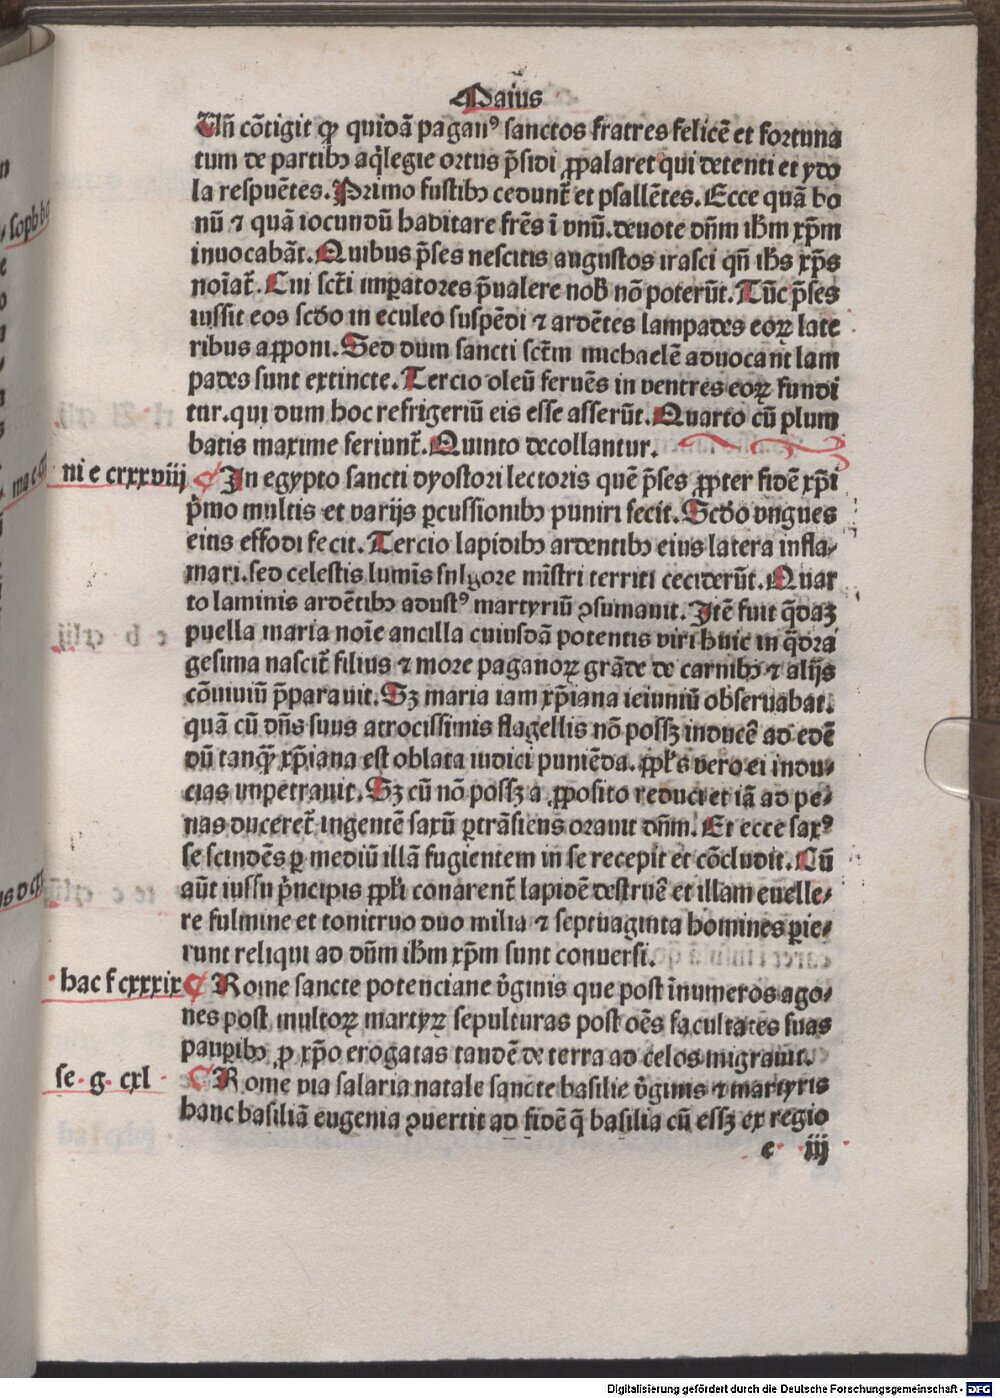 Maius
Uñ cõtigit ꝙ quidã pagan⁹ sanctos fratres felicẽ et fortuna
tum de partibꝫ aq̃legie ortus p̃sidi ꝓpalaret qui detenti et ydo
la respuẽtes. Primo fustibꝫ cedunt̃ et psallẽtes. Ecce quã bo
nũ ⁊ quã iocundũ habitare frẽs ĩ vnũ. deuote dñm ihm̃ xp̃m
inuocabãt. Quibus p̃ses nescitis augustos irasci qñ ihs̃ xp̃s
noĩat̃. Cui sc̃ti imꝑatores p̃ualere nob̃ nõ poterũt. Tũc p̃ses
iussit eos scd̃o in eculeo suspẽdi ⁊ ardẽtes lampades eoꝝ late
ribus aꝓponi. Sed dum sancti sc̃tm michaelẽ aduocant lam
pades sunt extincte. Tercio oleũ feruẽs in ventres eoꝝ fundi
tur. qui dum hoc refrigeriũ eis esse asserũt. Quarto cũ plum
batis maxime feriunt̃. Quinto decollantur.
ni e cxxxviij ¶ In egypto sancti dyostori lectoris quẽ p̃ses ꝓpter fidẽ xp̃i
p̃mo multis et varijs ꝑcussionibꝫ puniri fecit. Scd̃o vngues
eius effodi fecit. Tercio lapidibꝫ ardentibꝫ eius latera infla⸗
mari. sed celestis lumĩs fulgore mĩstri territi ceciderũt. Quar
to laminis ardẽtibꝫ adust⁹ martyriũ ꝯsumauit. Itẽ fuit q̃daꝫ
puella maria noĩe ancilla cuiusdã potentis viri huic in q̃dra
gesima nascit̃ filius ⁊ more paganoꝝ grãde de carnibꝫ ⁊ alijs
cõuiuiũ p̃parauit. Sꝫ maria iam xp̃iana ieiuniũ obseruabat.
quã cũ dñs suus atrocissimis flagellis nõ possꝫ inducẽ ad edẽ
dũ tanqꝫ xp̃iana est oblata iudici puniẽda. ppl̃s vero ei indu⸗
cias impetrauit. Sꝫ cũ nõ possꝫ a ꝓposito reduci et iã ad pe⸗
nas duceret̃ ingentẽ saxũ ꝑtrãsiens orauit dñm. Et ecce sax⁹
se scindẽs ꝑ mediũ illã fugientem in se recepit et cõcludit. Cũ
aũt iussu p̃ncipis ppl̃i conarent̃ lapidẽ destruẽ et illam euelle⸗
re fulmine et tonitruo duo milia ⁊ septuaginta homines ꝑie⸗
runt reliqui ad dñm ihm̃ xp̃m sunt conuersi.
bac f cxxxix ¶ Rome sancte potenciane v̓ginis que post ĩnumeros ago⸗
nes post multoꝝ martyꝝ sepulturas post oẽs facultates suas
pauꝑibꝫ ꝓ xp̃o erogatas tandẽ de terra ad celos migrauit.
se. g. cxl ¶ Rome via salaria natale sancte basilie v̓ginis ⁊ martyris
hanc basiliã eugenia ꝯuertit ad fidẽ q̃ basilia cũ essꝫ ex regio
e iij
Digitalisierung gefördert durch die Deutsche Forschungsgemeinschaft - DFG